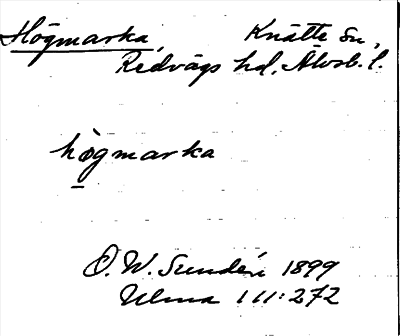 Högmarka, Knätte sn,
Redvägs hd, Älvsb. l.
högmarka
O. W. Sundén 1899
Ulma 111:272